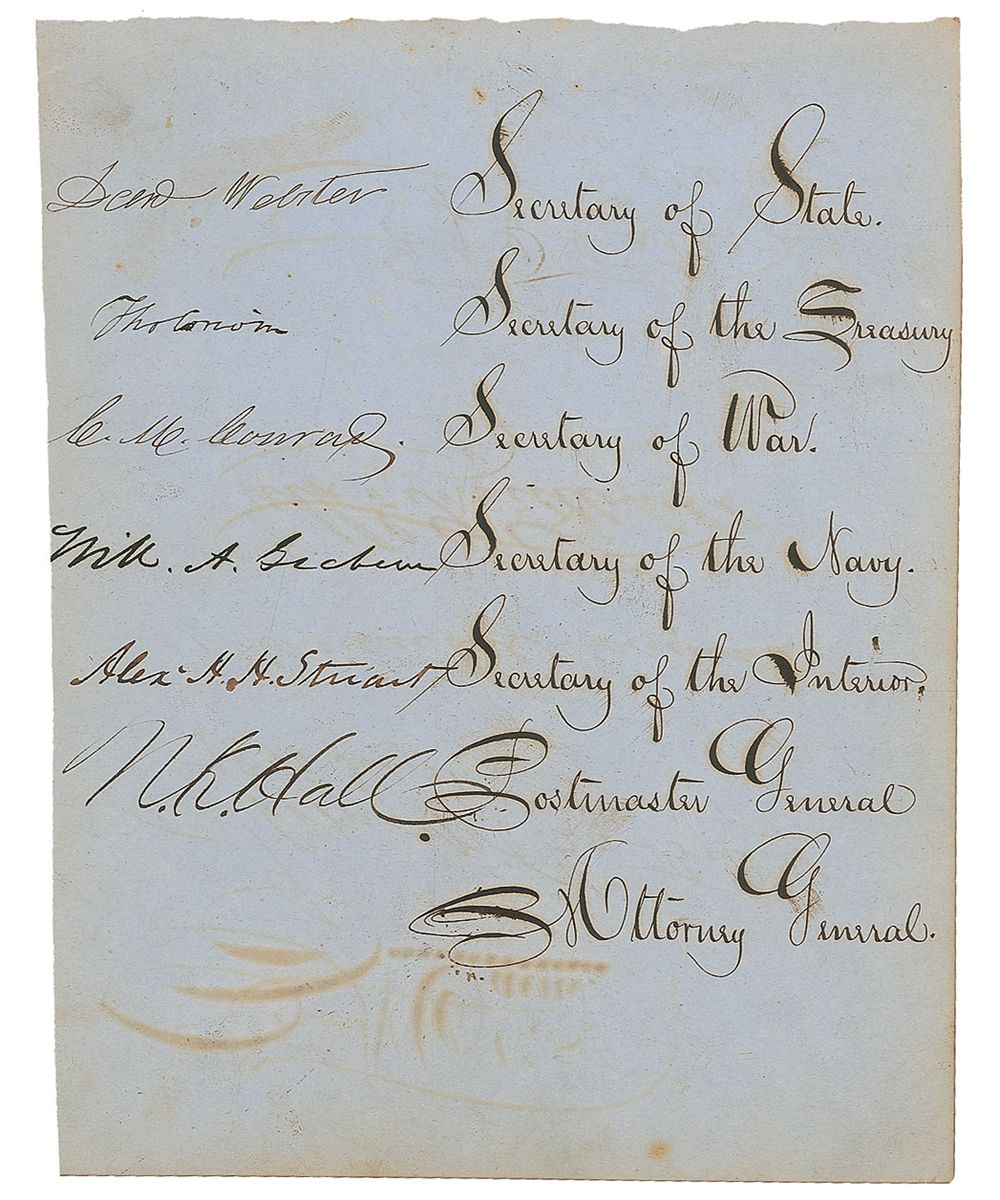 Danl Webster Secretary of State.
Tho Corwin Secretary of the Treasury
C. M. Conrad. Secretary of War.
Will. A. Graham Secretary of the Navy.
Alex H. H. Stuart Secretary of the Interior.
N. K. Hall Postmaster General
Attorney General.